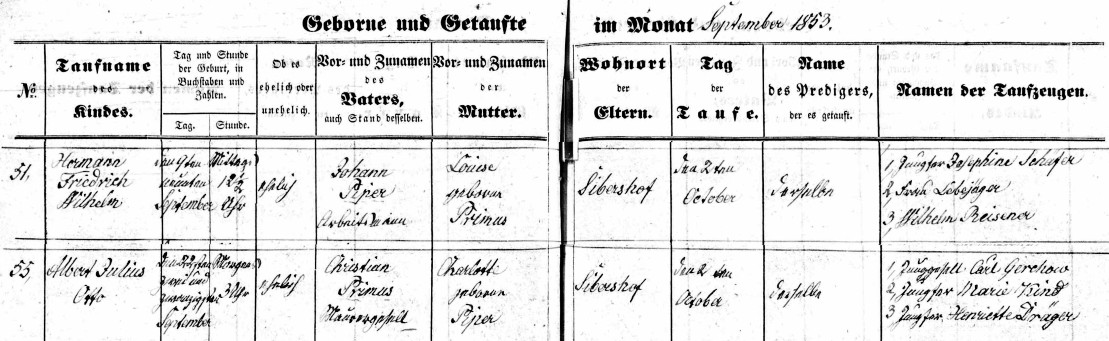 Geborne und Getaufte im Monat September 1853.
№
Taufname
des
Kindes.
Tag und Stunde
der Geburt, in
Buchstaben und
Zahlen.
Tag. Stunde.
Ob es
ehelich oder
unehelich.
Vor- und Zunamen
des
Vaters,
auch Stand desselben.
Vor- und Zunamen
der
Mutter.
Wohnort
der
Eltern.
Tag
der
Taufe.
Name
des Predigers,
der es getauft.
Namen der Taufzeugen.
51.
Hermann
Friedrich
Wilhelm
den 9ten
neunten
September
Mittags
12½
Uhr
ehelich
Johann
Piper
Arbeitsmann
Louise
geborene
Primus
Sibershof
den 2ten
October
derselbe
1, Jungfer Josephine Schäfer
2, Frau Lebejäger
3, Wilhelm
55.
Albert Julius
Otto
den 22sten
zwei und
zwanzigsten
September
Morgens
3 Uhr
ehelich
Christian
Primus
Maurergesell
Charlotte
geborene
Piper
Sibershof
den 2ten
October
derselbe
1, Junggesell Carl Gerchow
2, Jungfer Marie Kind
3, Jungfer Henriette Dräger